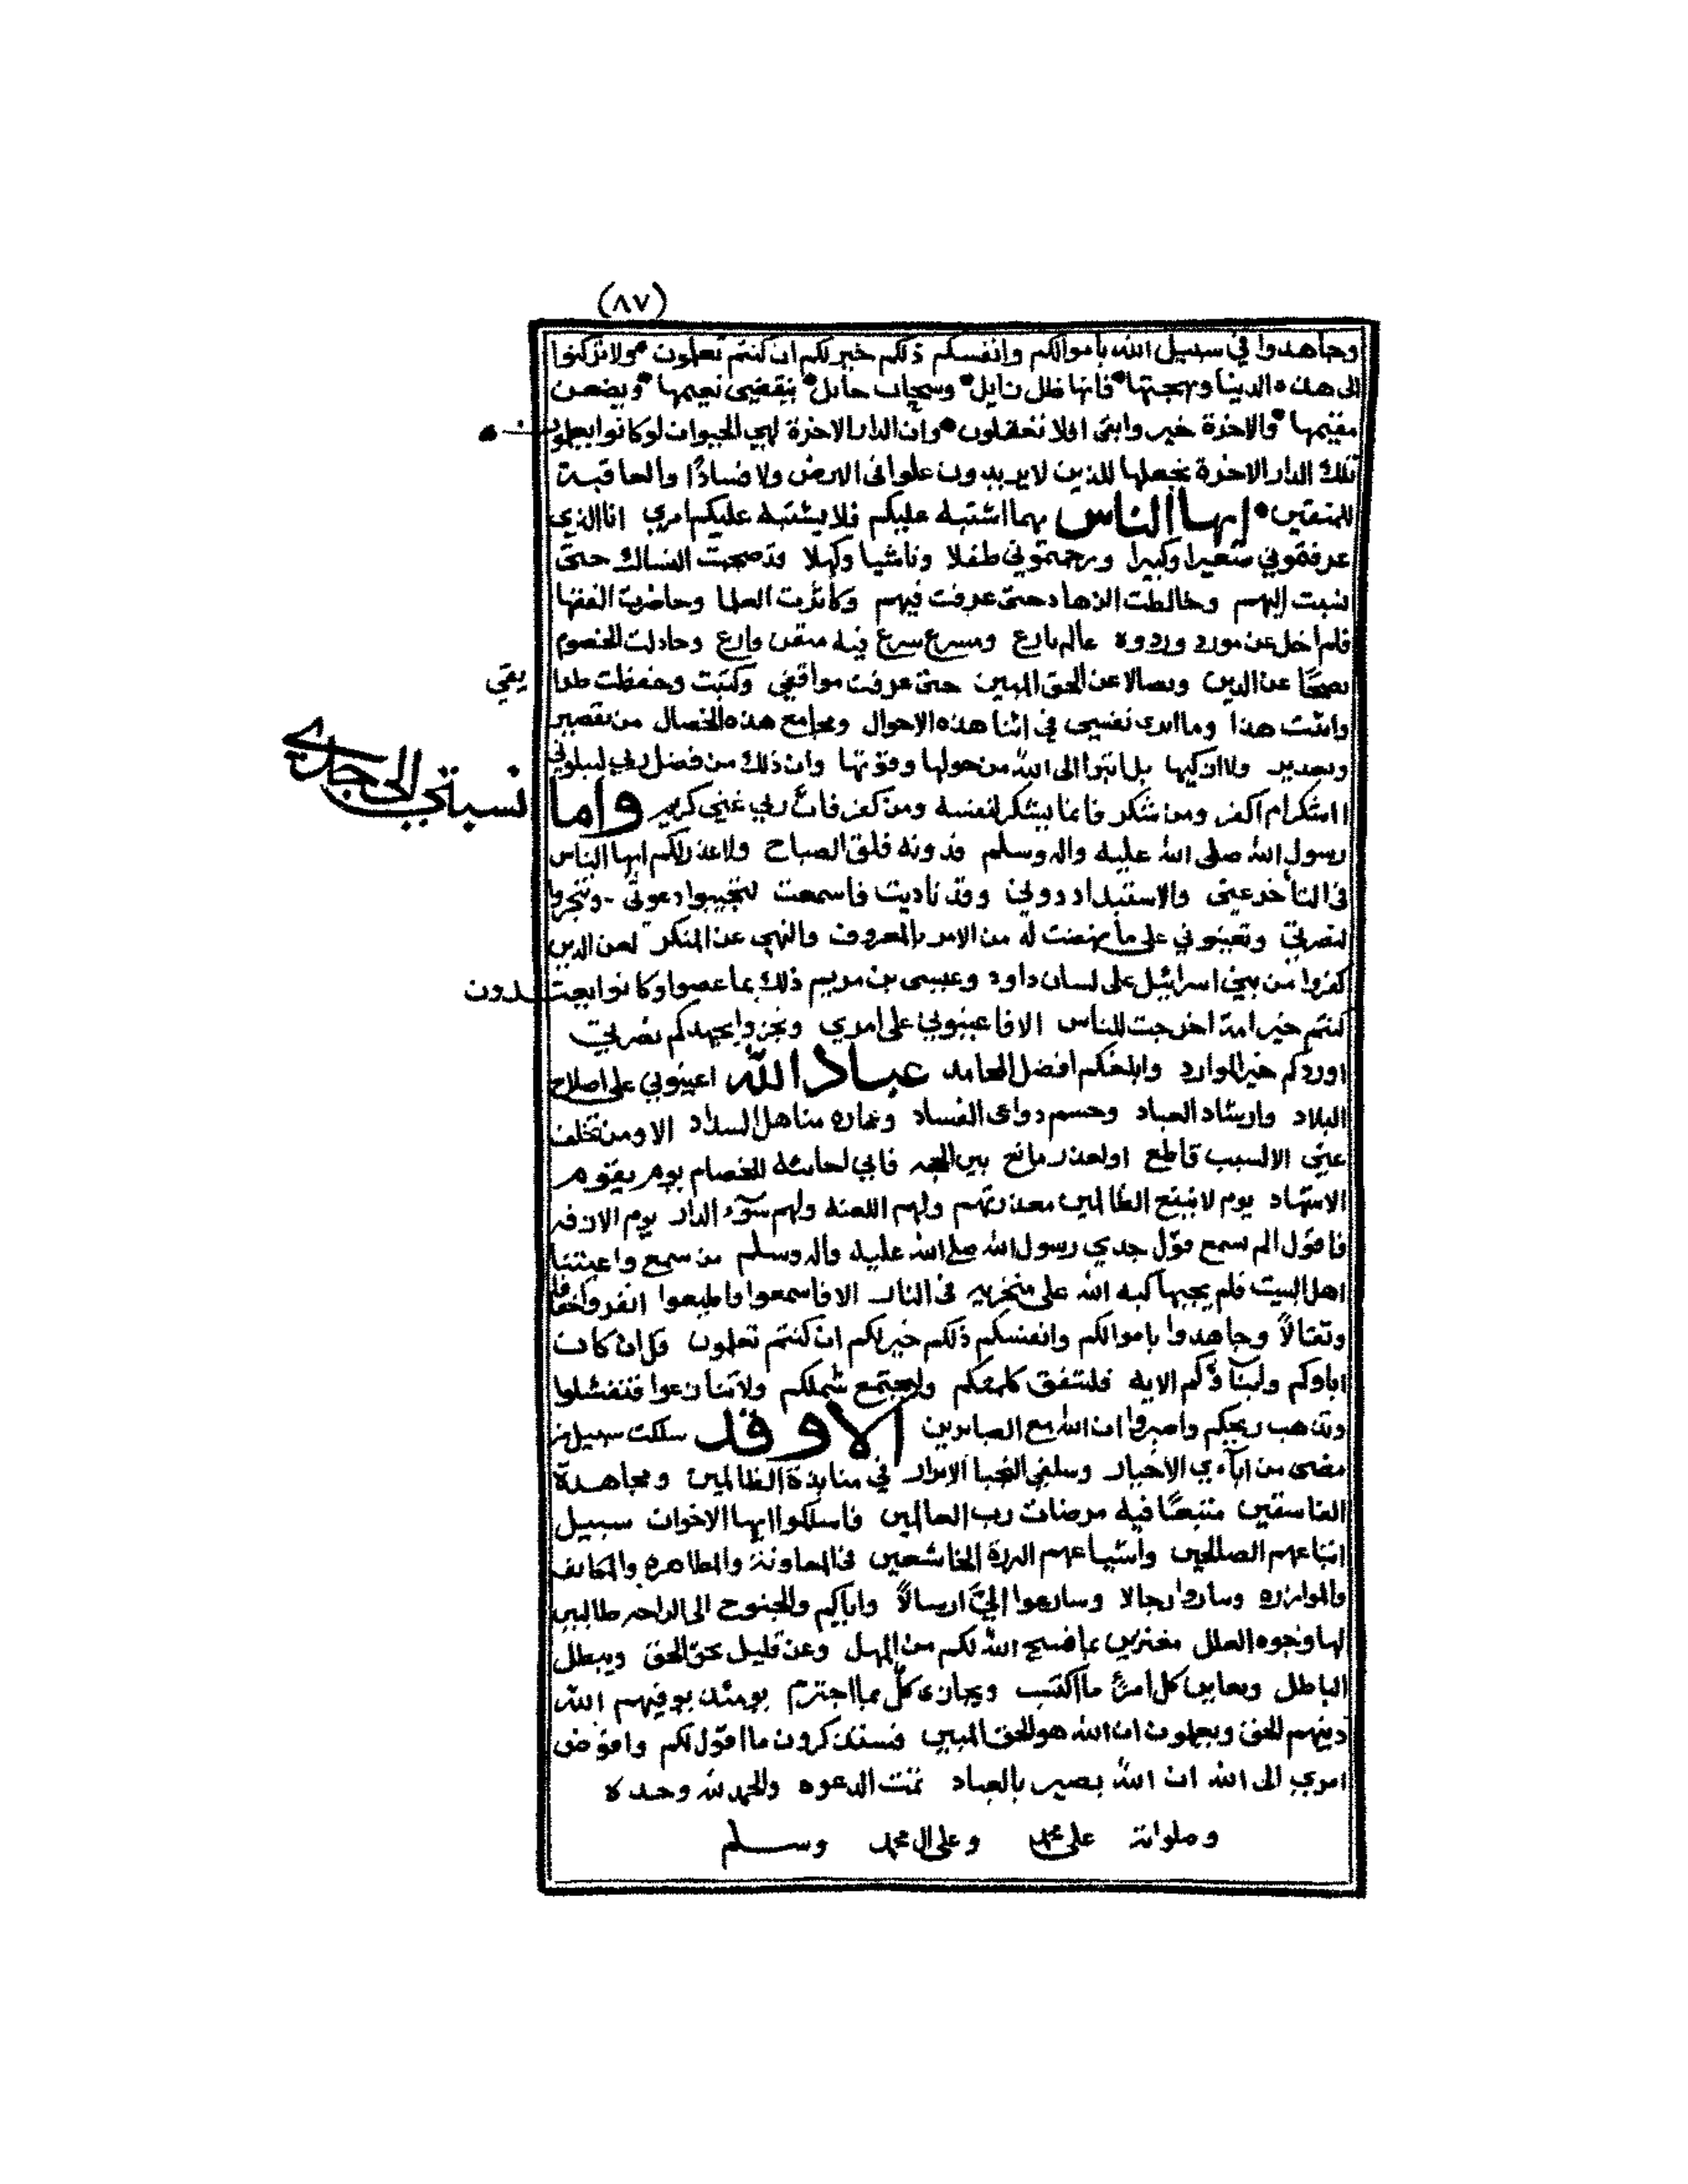 (٨٧)
وجاهدوا في سبيل الله باموالكم وانفسكم ذلكم خير لكم ان كنتم تعلمون ولا تركنوا
الى هذه الدينا وبهجتها فانها ظل زايل وسحاب حايل ينقضى نعيمها ويضعن
مقيمها والاخرة خير وابقى افلا تعقلون وان الدار الاخرة لهي الحيوان لو كانوا يعلمون
تلك الدار الاخرة نجعلها للذين لا يريدون علوا فى الارض ولا فسادًا والعاقبة
للمتقين ايها الناس مهما اشتبه عليكم فلا يشتبه عليكم امري انا الذي
عرفتموني صغيرا وكبيرا ورحمتموني طفلا وناشيا وكهلا وقد صحبت النساك حتى
نسبت إليهم وخالطت الزهاد حتى عرفت فيهم وكاثرت العلما وحاضرت الفقها
فلم اخل عن مورد ورده عالم بارع ومسرع سرع فيه متقن وارع وجادلت الخصوم
نصحًا عن الدين ونضالا عن الحق المبين حتى عرفت مواقفي وكتبت وحفظت طرا يقي
واثبت هذا وما ابرى نفسي في اثنا هذه الاحوال ومجامع هذه الخصال من تقصير
وتعذير ولا ازكيها بل ابتوا الى الله من حولها وقوتها وان ذلك من فضل ربي ليبلوني
ااشكر ام اكفر ومن شكر فانما يشكر لنفسه ومن كفر فان ربي غني كريم واما نسبتي الى جدي
رسول الله صلى الله عليه واله وسلم فدونه فلق الصباح ولا عذر لكم ايها الناس
فى التأخر عني والاستبداد دوني وقد ناديت فاسمعت لتجيبوا دعوتي وتتجروا
لنصرتي وتعينوني على ما نهضت له من الامر بالمعروف والنهي عن المنكر لعن الذين
كفروا من بني اسرائيل على لسان داود وعيسى بن مريم ذلك بما عصوا وكانوا يعتدون
كنتم خير امة اخرجت للناس الا فاعينوني على امري وتجروا بجهدكم نصرتي
اوردكم خير الموارد وابلغكم افضل المحامد عباد الله اعينوني على اصلاح
البلاد وارشاد العباد وحسم دواعى الفساد وعماره مناهل السداد الا ومن تخلف
عني الا لسبب قاطع او لعذر مانع بين الحجه فاني لجاثيه للخصام يوم يقوم
الاشهاد يوم لا ينفع الظالمين معذرتهم ولهم اللعنه ولهم سوء الدار يوم الازفه
فاقول الم سمع قول جدي رسول الله صلى الله عليه واله وسلم من سمع واعيتنا
اهل البيت فلم يجبها كبه الله على منخريه فى النار الا فاسمعوا واطيعوا انفروا خفافا
وثقالاً وجاهدوا باموالكم وانفسكم ذلكم خير لكم ان كنتم تعلمون قل ان كان
اباوكم وابناؤكم الايه فلتتفق كلمتكم وليجتمع شملكم ولا تنازعوا فتفشلوا
وتذهب ريحكم واصبروا ان الله مع الصابرين الا وقد سلكت سبيل من
مضى من اباءي الاخيار وسلفي النجبا الابرار في منابذة الظالمين ومجاهدة
الفاسقين متبعًا فيه مرضات رب العالمين فاسلكوا ايها الاخوان سبيل
اتباعهم الصالحين واشياعهم البررة الخاشعين فى المعاونة والمظاهره والمكانف
والموازره وسارو ارجالا وسارعوا اليّ ارسالاً واياكم والجنوح الى الراحه طالبين
لها وجوه العلل مغترين بما فسح الله لكم من المهل وعن قليل يحق الحق ويبطل
الباطل ويعاين كل امرئ ما اكتسب ويجازى كلّ بما اجترم يومئذ يوفيهم الله
دينهم الحق ويعلمون ان الله هو الحق المبين فستذكرون ما اقول لكم وافوض
امري الى الله ان الله بصير بالعباد تمت الدعوه والحمد لله وحده
وصلواته على محمد وعلى ال محمد وسلم